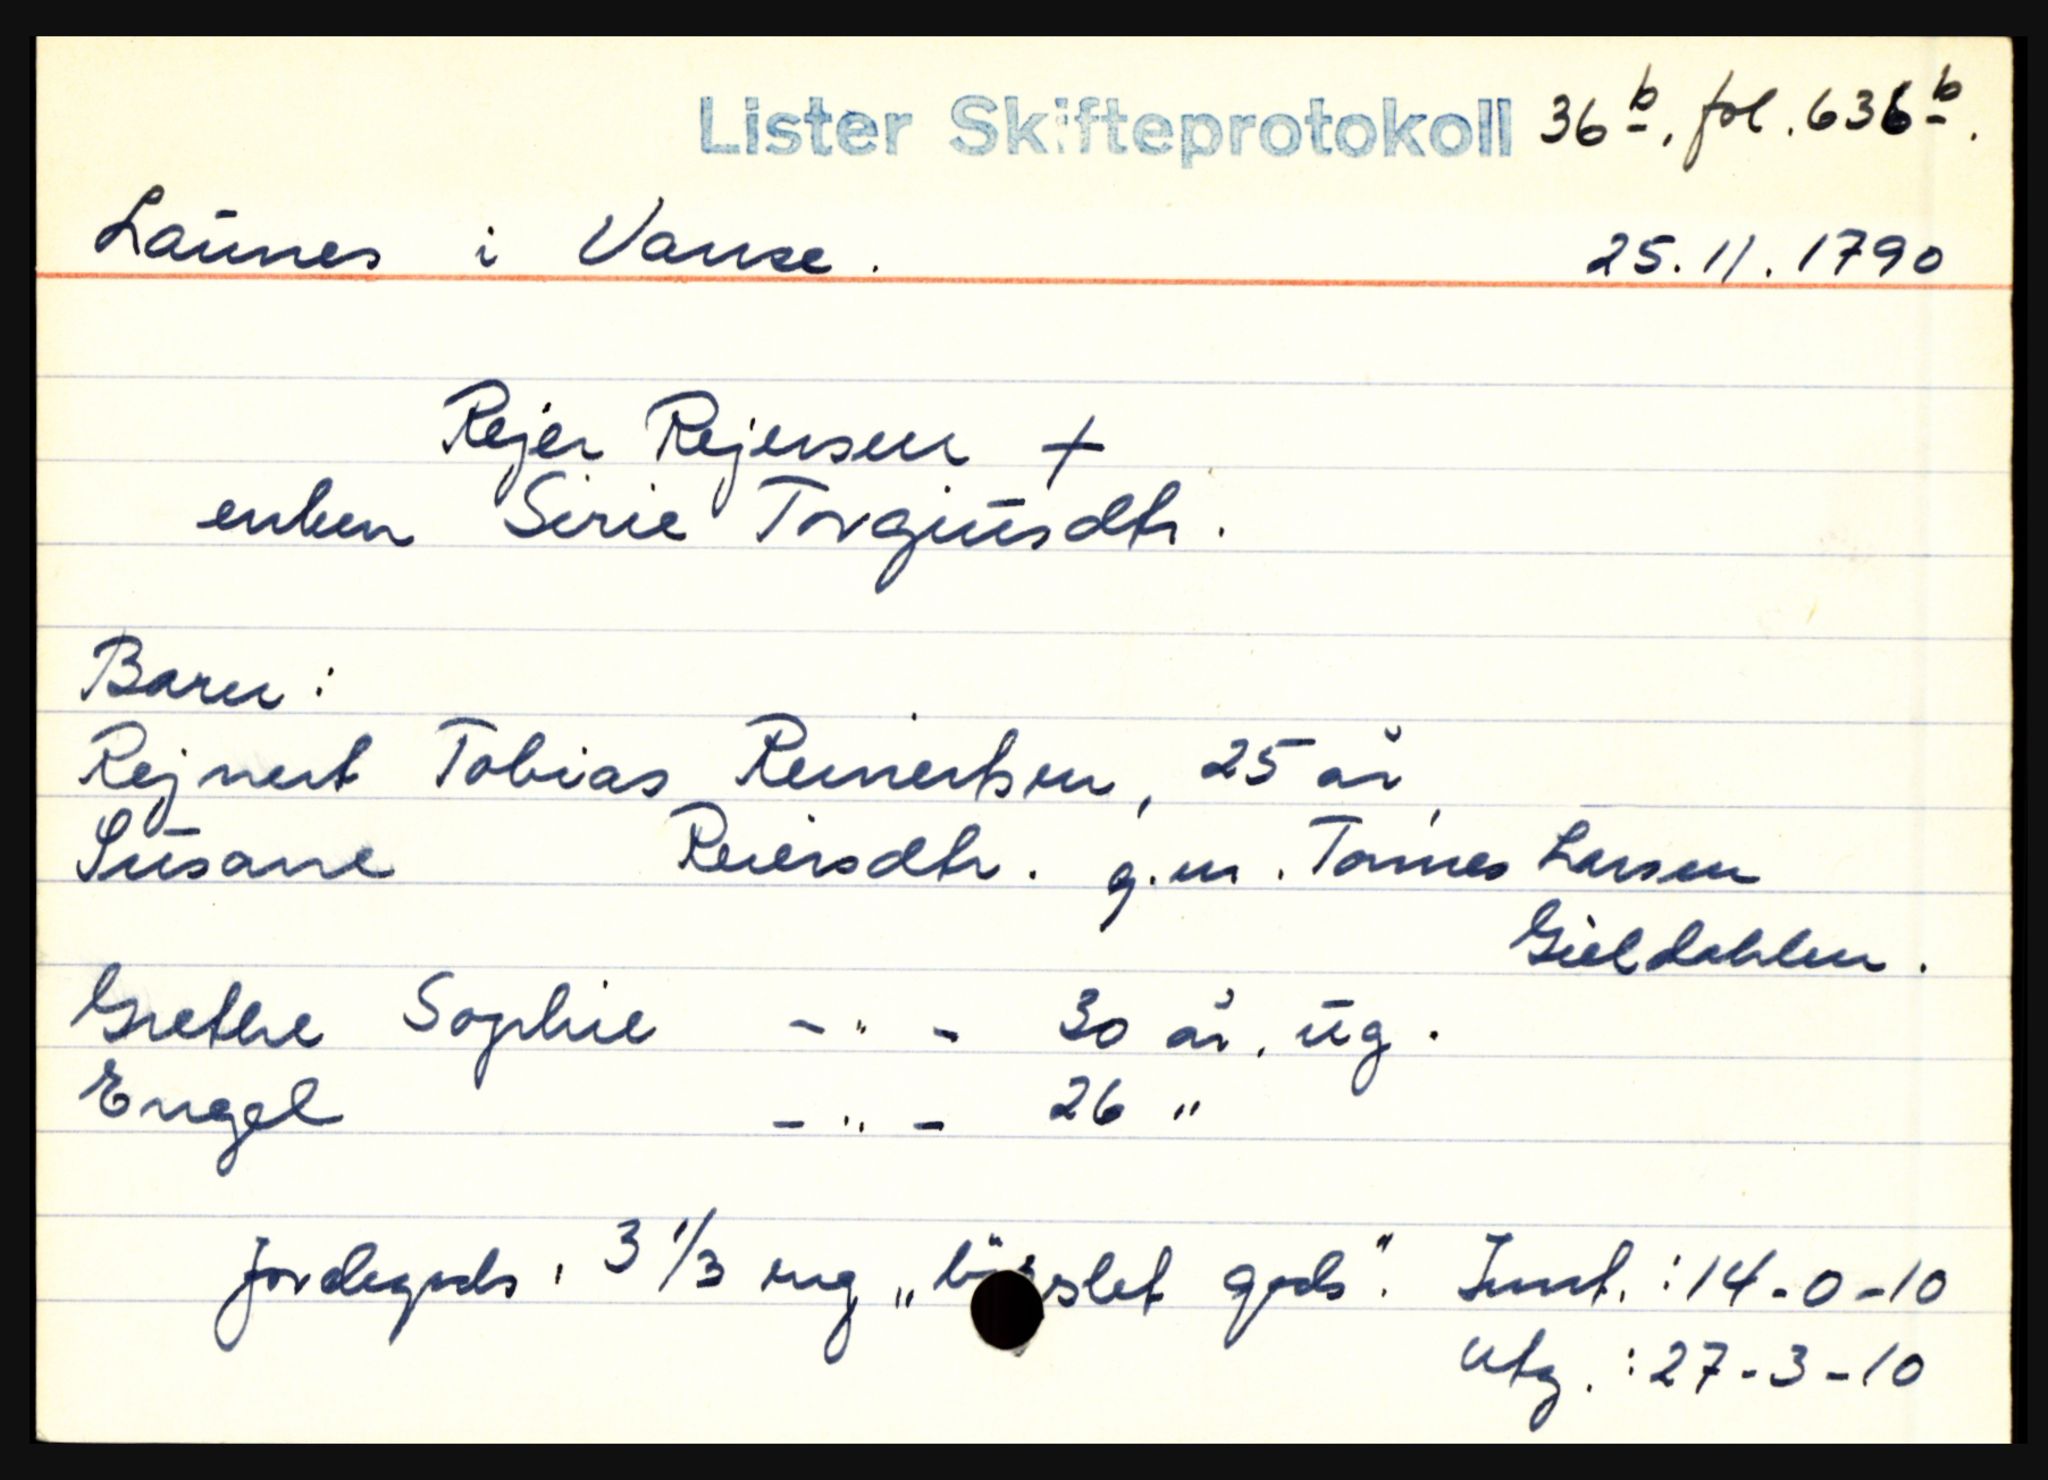 Lister Skifteprotokoll 36 b, fol. 636 b.
Launes i Vanse. 25.11.1790
Rejer Rejersen +
enken Sirie Torgiusdtr.
Barn:
Rejnert Tobias Reinertsen, 25 år,
Susane Reiersdtr. g.m. Tønnes Larsen
Gieldahlen.
Grethe Sophie - " - 30 år, ug.
Engel - " - 26 "
Jordegods, 3 1/3 eng gods". Innt.: 14-0-10
Utg.: 27-3-10